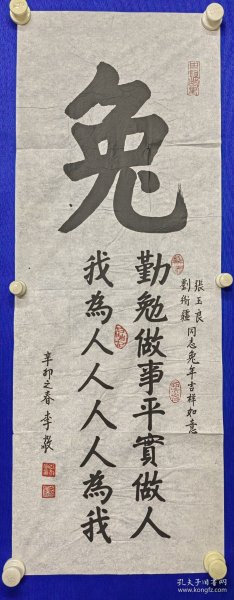 兔
張玉良
劉衛疆 同志兔年吉祥如意
勤勉做事平實做人
我為人人人人為我
辛卯之春 李巖
孔夫子旧书网